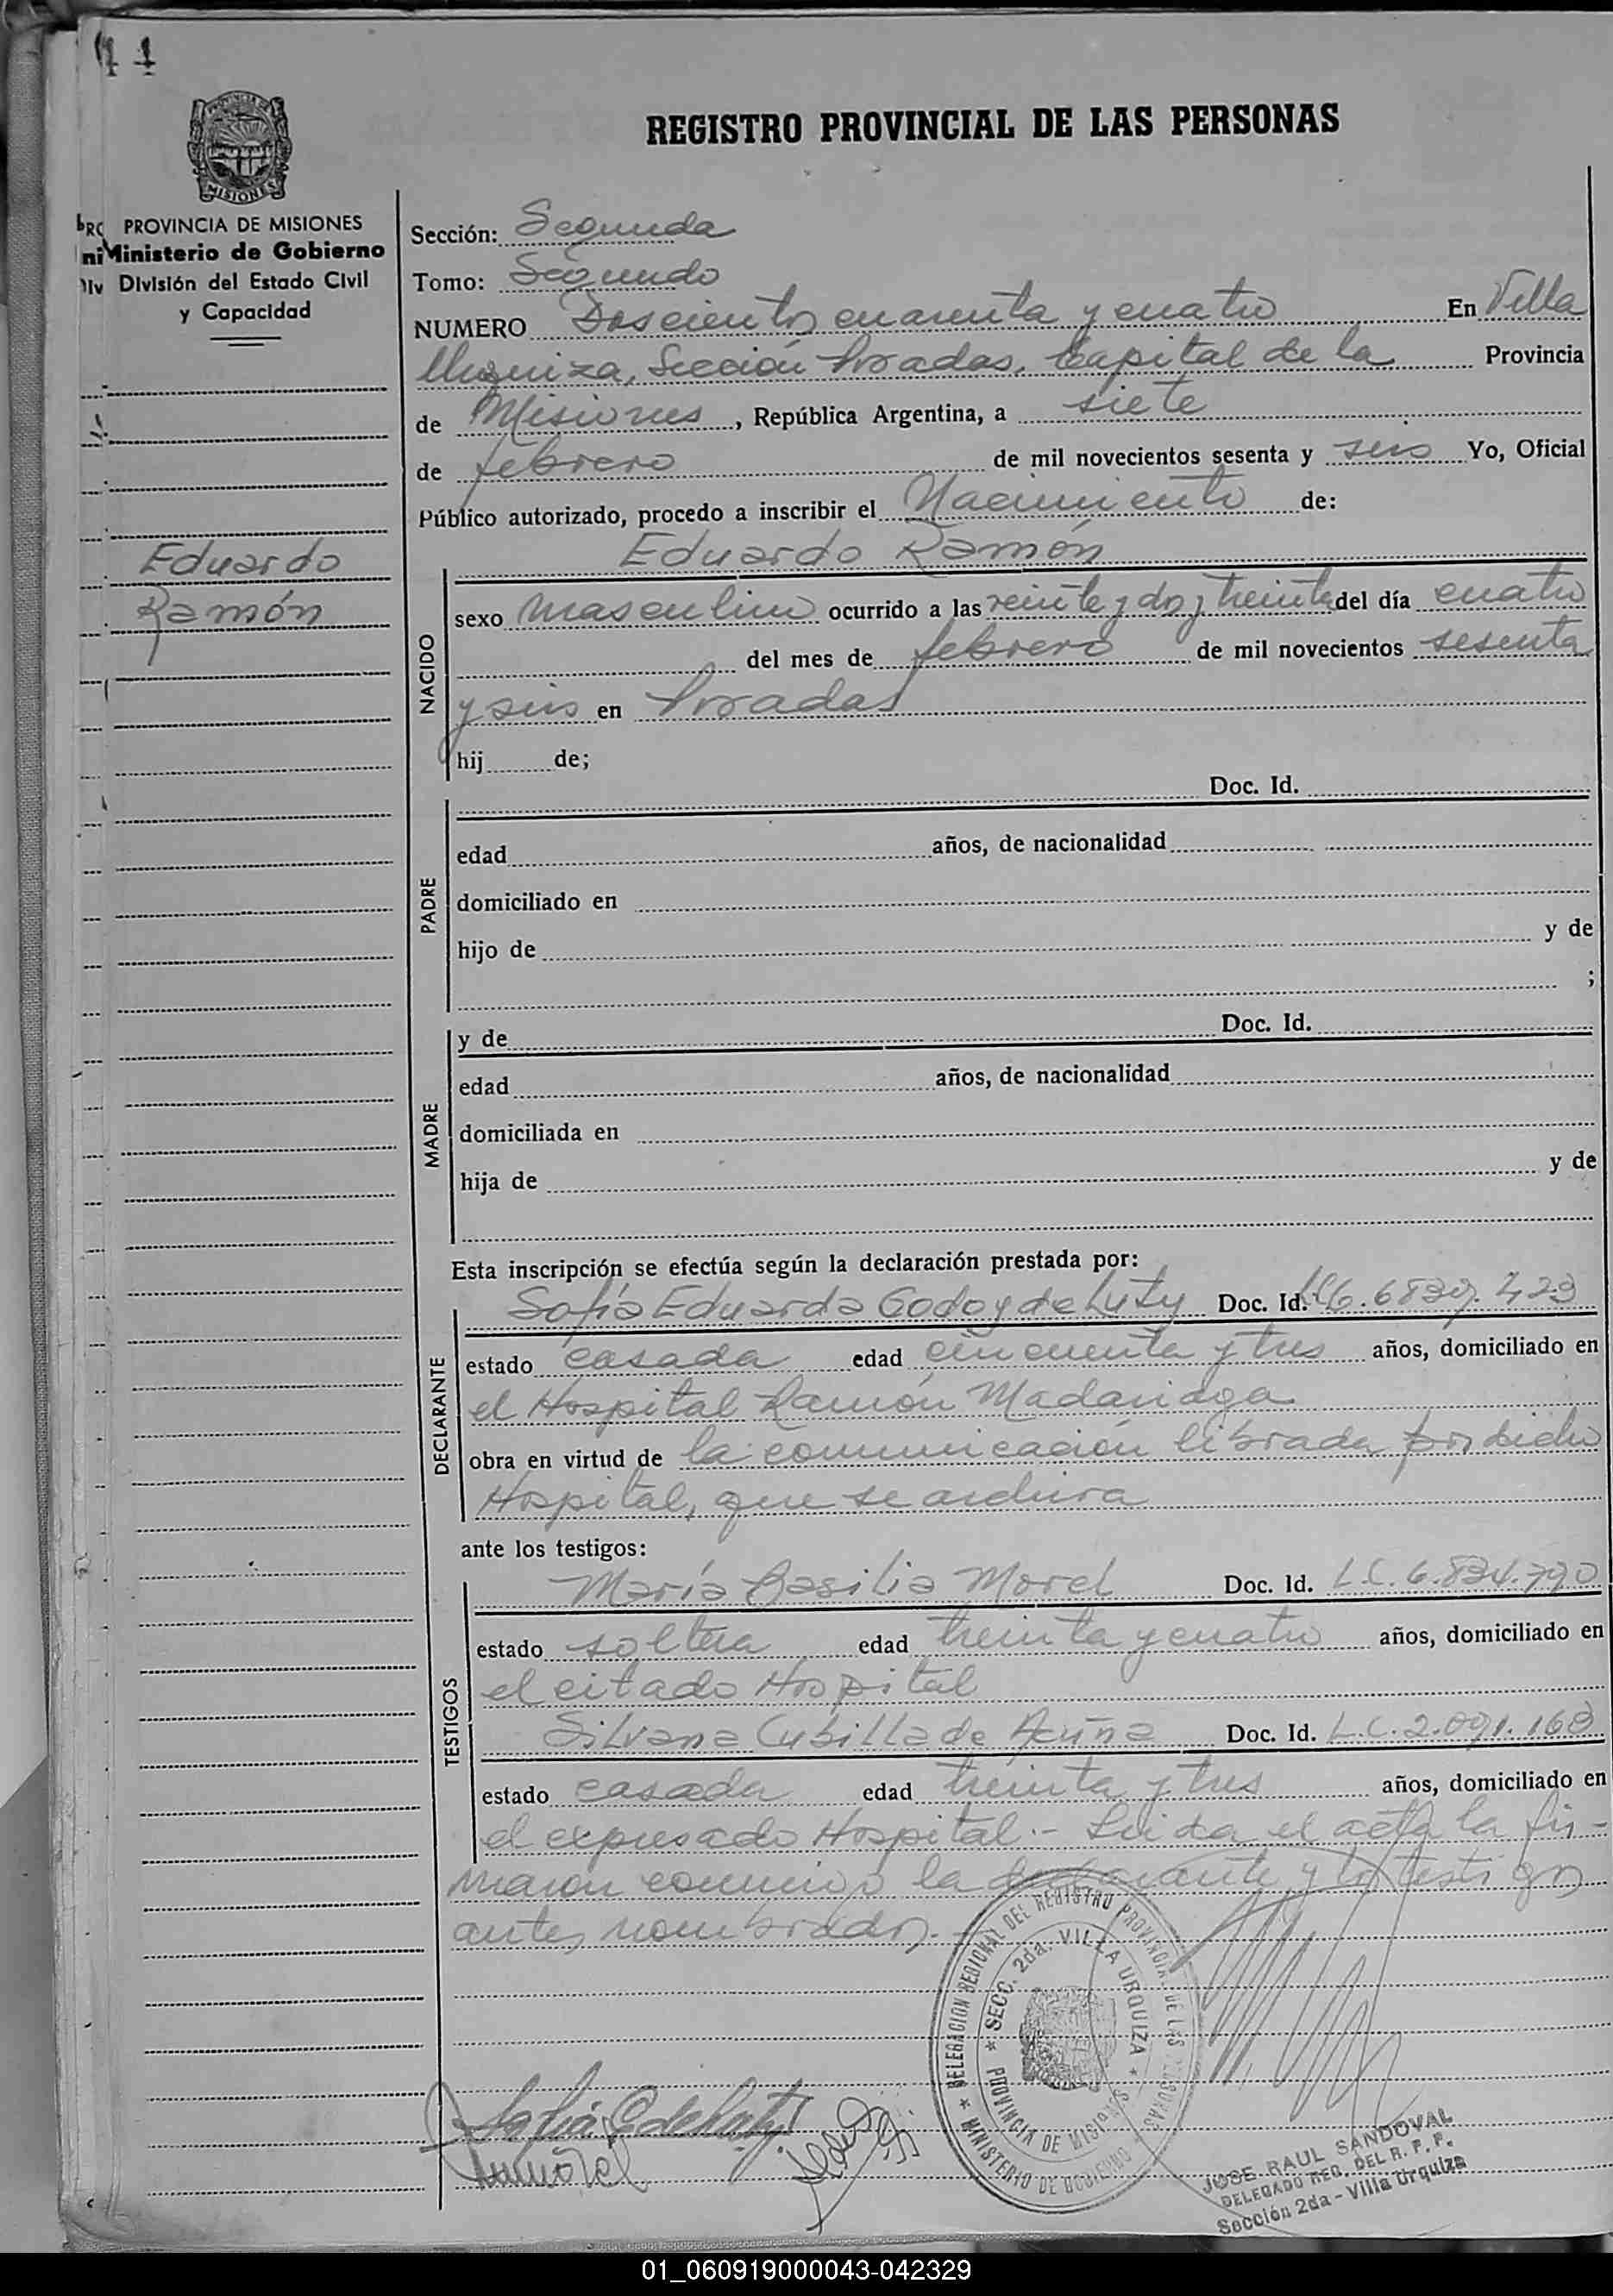 REGISTRO PROVINCIAL DE LAS PERSONAS
MISIONES
PROVINCIA DE MISIONES
Ministerio de Gobierno
División del Estado Civil
y Capacidad
Eduardo
Ramón
Sección: Segunda
Tomo: Segundo
NUMERO Doscientos cuarenta y cuatro En Villa
Urquiza, Sección Posadas, Capital de la Provincia
de Misiones, República Argentina, a siete
de febrero de mil novecientos sesenta y seis Yo, Oficial
Público autorizado, procedo a inscribir el Nacimiento de:
Eduardo Ramón
NACIDO
sexo masculino ocurrido a las veinte y dos y treinta del día cuatro
del mes de febrero de mil novecientos sesenta
y seis en Posadas
hij de;
PADRE
Doc. Id.
edad años, de nacionalidad
domiciliado en
hijo de y de
;
MADRE
y de Doc. Id.
edad años, de nacionalidad
domiciliada en
hija de y de
Esta inscripción se efectúa según la declaración prestada por:
DECLARANTE
Sofía Eduarda Godoy de Luty Doc. Id. 6.839.423
estado casada edad cincuenta y tres años, domiciliado en
el Hospital Ramón Madariaga
obra en virtud de la comunicación librada por dicho
Hospital, que se archiva
ante los testigos:
TESTIGOS
María Basilia Morel Doc. Id. L.C. 6.834.790
estado soltera edad treinta y cuatro años, domiciliado en
el citado Hospital
Silvana Cubilla de Acuña Doc. Id. L.C. 2.091.168
estado casada edad treinta y tres años, domiciliado en
el expresado Hospital.- Leida el acta la fir-
maron conmigo la declarante y los testigos
antes nombrados.-
DELEGACION REGIONAL DEL REGISTRO PROVINCIAL DE LAS PERSONAS
* MINISTERIO DE GOBIERNO
* SECC. 2da. VILLA URQUIZA *
PROVINCIA DE MISIONES
JOSE RAUL SANDOVAL
DELEGADO REG. DEL R. P. P.
Sección 2da - Villa Urquiza
01_060919000043-042329